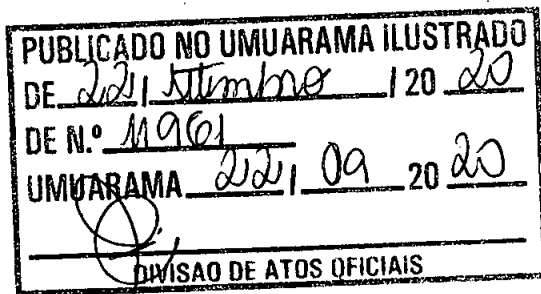 PUBLICADO NO UMUARAMA ILUSTRADO
DE 22 / Setembro / 20 20
DE N.º 11961
UMUARAMA 22 / 09 20 20
DIVISAO DE ATOS OFICIAIS